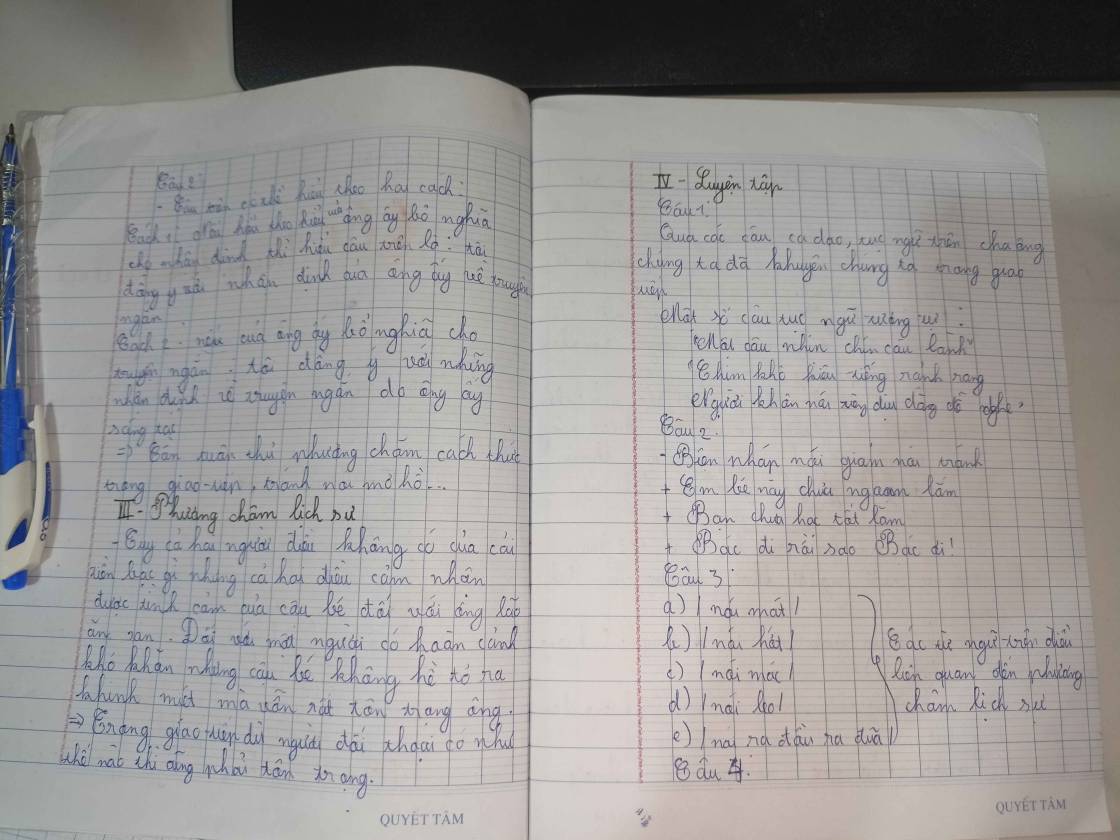 Câu 2:
- Câu trên có thể hiểu theo hai cách:
Cách 1: Nếu hiểu theo kiểu của ông ấy bổ nghĩa
cho nhận định thì hiểu câu trên là: tôi
đồng ý với nhận định của ông ấy về truyện
ngắn
Cách 2: nếu của ông ấy bổ nghĩa cho
truyện ngắn. tôi đồng ý với những
nhận định về truyện ngắn do ông ấy
sáng tác
=> Cần tuân thủ phương châm cách thức
trong giao tiếp, tránh nói mơ hồ...
III - Phương châm lịch sự
- Tuy cả hai người điều không có của cải
tiền bạc gì nhưng cả hai điều cảm nhận
được tình cảm của cậu bé đối với ông lão
ăn xan. Đối với một người có hoàn cảnh
khó khăn nhưng cậu bé không hề tỏ ra
khinh miệt mà vẫn rất tôn trọng ông.
=> Trong giao tiếp dù người đối thoại có như
thế nào thì cũng phải tôn trọng.
QUYẾT TÂM
IV - Luyện tập
Câu 1:
Qua các câu ca dao, tục ngữ trên cha ông
chúng ta đã khuyên chúng ta trong giao
tiếp
Một số câu tục ngữ tương tự:
"Một câu nhịn chín câu lành"
"Chim khô kêu tiếng rảnh rang
Người khôn nói tiếng dịu dàng dễ nghe"
Câu 2:
- Biện pháp nói giảm nói tránh
+ Em bé này chưa ngoan lắm
+ Bạn chưa học tốt lắm
+ Bác đi rồi sao Bác ơi!
Câu 3:
a) / nói mát /
b) / nói hớt /
c) / nói móc /
d) / nói leo /
e) / nói ra đầu ra đũa /
Các từ ngữ trên điều
liên quan đến phương
châm lịch sự
Câu 4:
QUYẾT TÂM